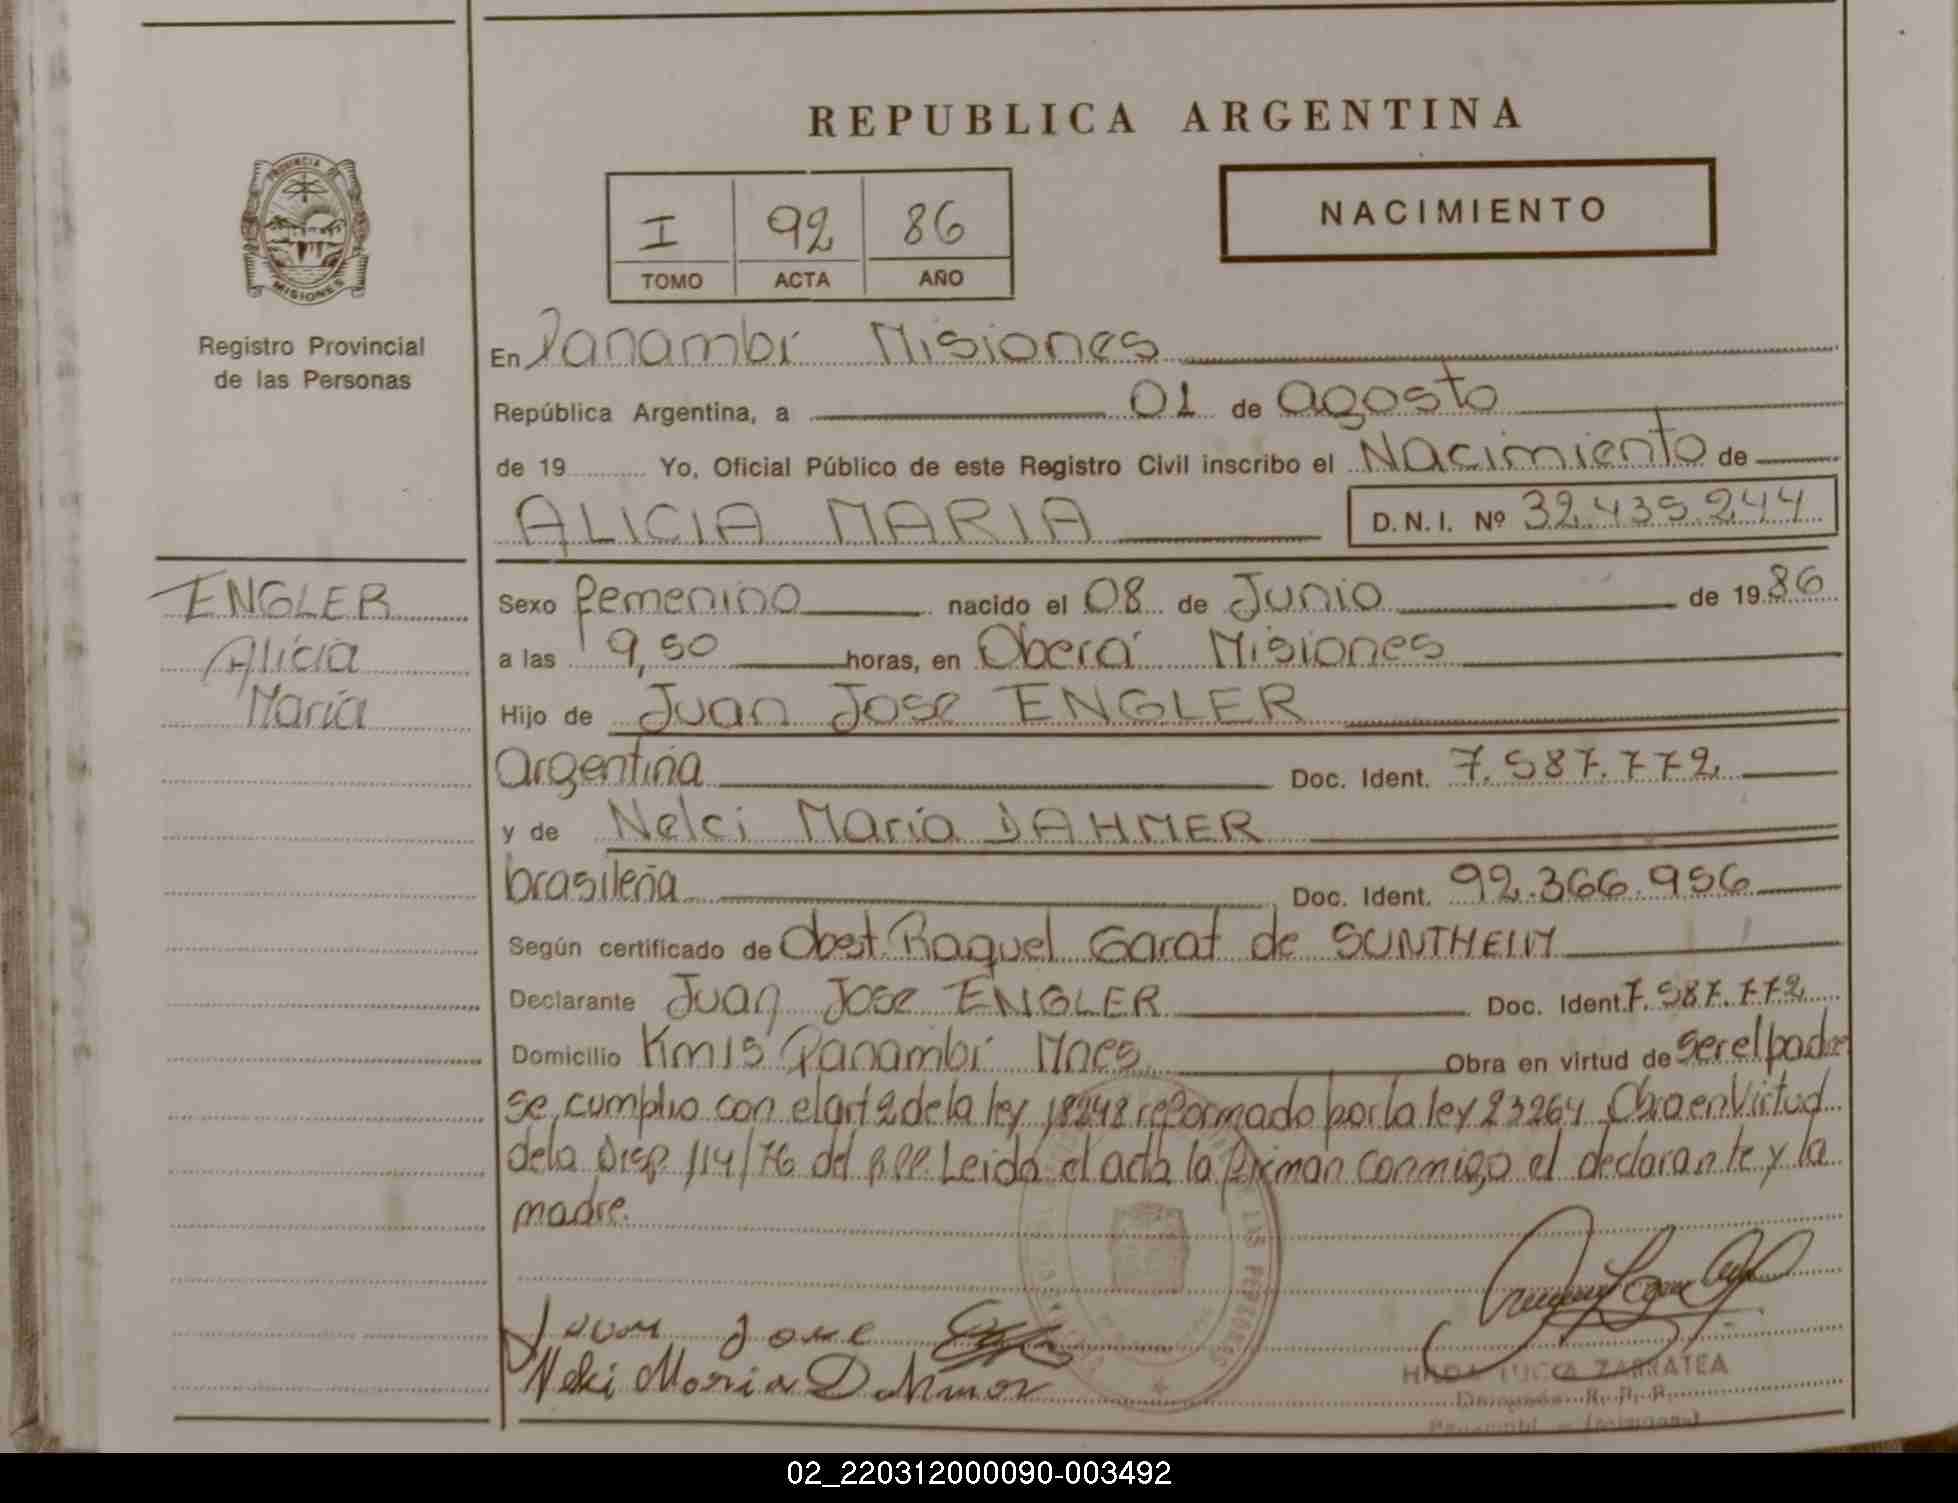 REPUBLICA ARGENTINA
PROVINCIA DE MISIONES
I 92 86
TOMO ACTA AÑO
NACIMIENTO
Registro Provincial
de las Personas
En Panambí Misiones
República Argentina, a 01 de agosto
de 19 Yo, Oficial Público de este Registro Civil inscribo el Nacimiento de
ALICIA MARIA D.N.I. Nº 32.435.244
ENGLER
Alicia
María
Sexo femenino nacido el 08 de Junio de 1986
a las 9,50 horas, en Oberá Misiones
Hijo de Juan Jose ENGLER
argentina Doc. Ident. 7.587.772
y de Nelci María DAHMER
brasileña Doc. Ident. 92.366.956
Según certificado de Obst. Raquel Garat de SUNTHEIM
Declarante Juan Jose ENGLER Doc. Ident. 7.587.772
Domicilio Km15 Panambí Mnes Obra en virtud de ser el padre
se cumplio con el art 2 de la ley 18248 reformado por la ley 23264 Obra en Virtud
de la Disp. 114/76 del R.P.P. Leida el acta la firman conmigo el declarante y la
madre.
Juan Jose
Nelci Maria Dahmer
ZARRATEA
R. P. P.
02_220312000090-003492